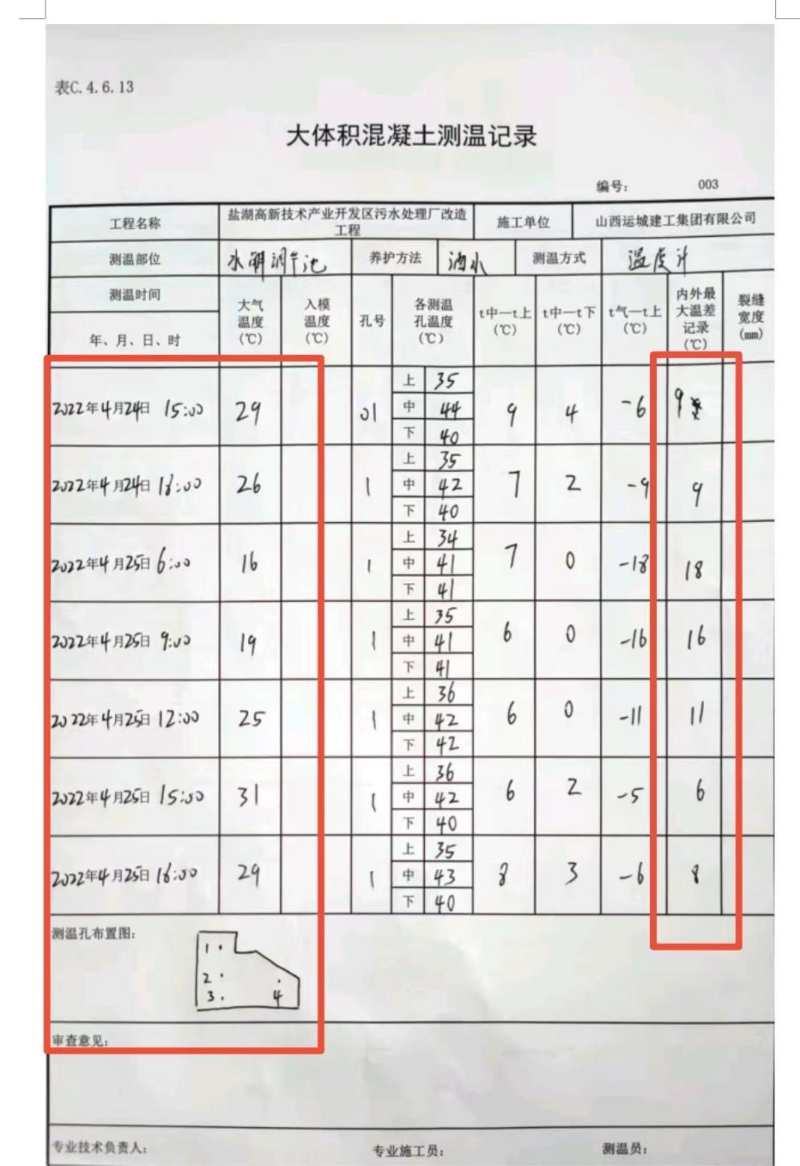 表C.4.6.13
大体积混凝土测温记录
编号: 003
工程名称 盐湖高新技术产业开发区污水处理厂改造工程 施工单位 山西运城建工集团有限公司
测温部位 水解调节池 养护方法 洒水 测温方式 温度计
测温时间 年、月、日、时 大气温度(℃) 入模温度(℃) 孔号 各测温孔温度(℃) t中—t上(℃) t中—t下(℃) t气—t上(℃) 内外最大温差记录(℃) 裂缝宽度(mm)
2022年4月24日 15:00 29 01 上 35 中 44 下 40 9 4 -6 9
2022年4月24日 18:00 26 1 上 35 中 42 下 40 7 2 -9 9
2022年4月25日 6:00 16 1 上 34 中 41 下 41 7 0 -18 18
2022年4月25日 9:00 19 1 上 35 中 41 下 41 6 0 -16 16
2022年4月25日 12:00 25 1 上 36 中 42 下 42 6 0 -11 11
2022年4月25日 15:00 31 1 上 36 中 42 下 40 6 2 -5 6
2022年4月25日 18:00 29 1 上 35 中 43 下 40 8 3 -6 8
测温孔布置图:
1
2
3 4
审查意见:
专业技术负责人: 专业施工员: 测温员: